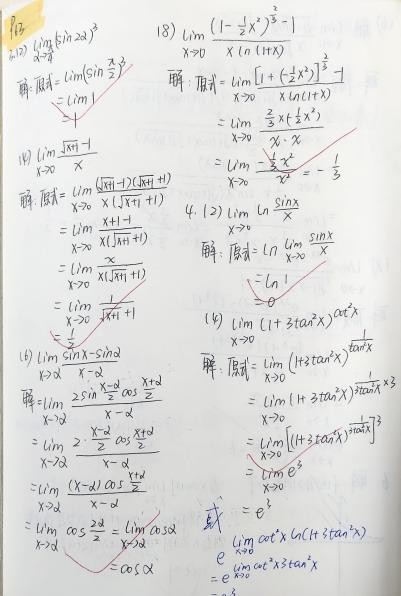 P63
3.(2) lim_{α→π/4} (sin2α)³
解:原式=lim(sin π/2)³
=lim1
=1
(4) lim_{x→0} (√(x+1) -1)/x
解:原式=lim_{x→0} ((√(x+1) -1)(√(x+1) +1))/(x(√(x+1) +1))
=lim_{x→0} (x+1-1)/(x(√(x+1) +1))
=lim_{x→0} x/(x(√(x+1) +1))
=lim_{x→0} 1/(√(x+1) +1)
=1/2
(6) lim_{x→α} (sinx-sinα)/(x-α)
解=lim_{x→α} (2sin (x-α)/2 cos (x+α)/2)/(x-α)
=lim_{x→α} (2·(x-α)/2 cos (x+α)/2)/(x-α)
=lim_{x→α} ((x-α)cos (x+α)/2)/(x-α)
=lim_{x→α} cos 2α/2 = lim_{x→α} cosα
=cosα
(8) lim_{x→0} ((1-½x²)^{2/3}-1)/(x ln(1+x))
解:原式=lim_{x→0} ([1+(-½x²)]^{2/3}-1)/(x ln(1+x))
=lim_{x→0} (2/3 x(-½x²))/(x·x)
=lim_{x→0} (-⅓x²)/x² = -1/3
4.(2) lim_{x→0} ln sinx/x
解:原式=ln lim_{x→0} sinx/x
=ln1
=0
(4) lim_{x→0} (1+3tan²x)^{cot²x}
解:原式=lim_{x→0} (1+3tan²x)^{1/tan²x}
=lim_{x→0} (1+3tan²x)^{1/(3tan²x)×3}
=lim_{x→0} [(1+3tan²x)^{1/(3tan²x)}]³
=lim_{x→0} e³
=e³
或
e^{lim_{x→0} cot²x ln(1+3tan²x)}
=e^{lim_{x→0} cot²x 3tan²x}
=e³